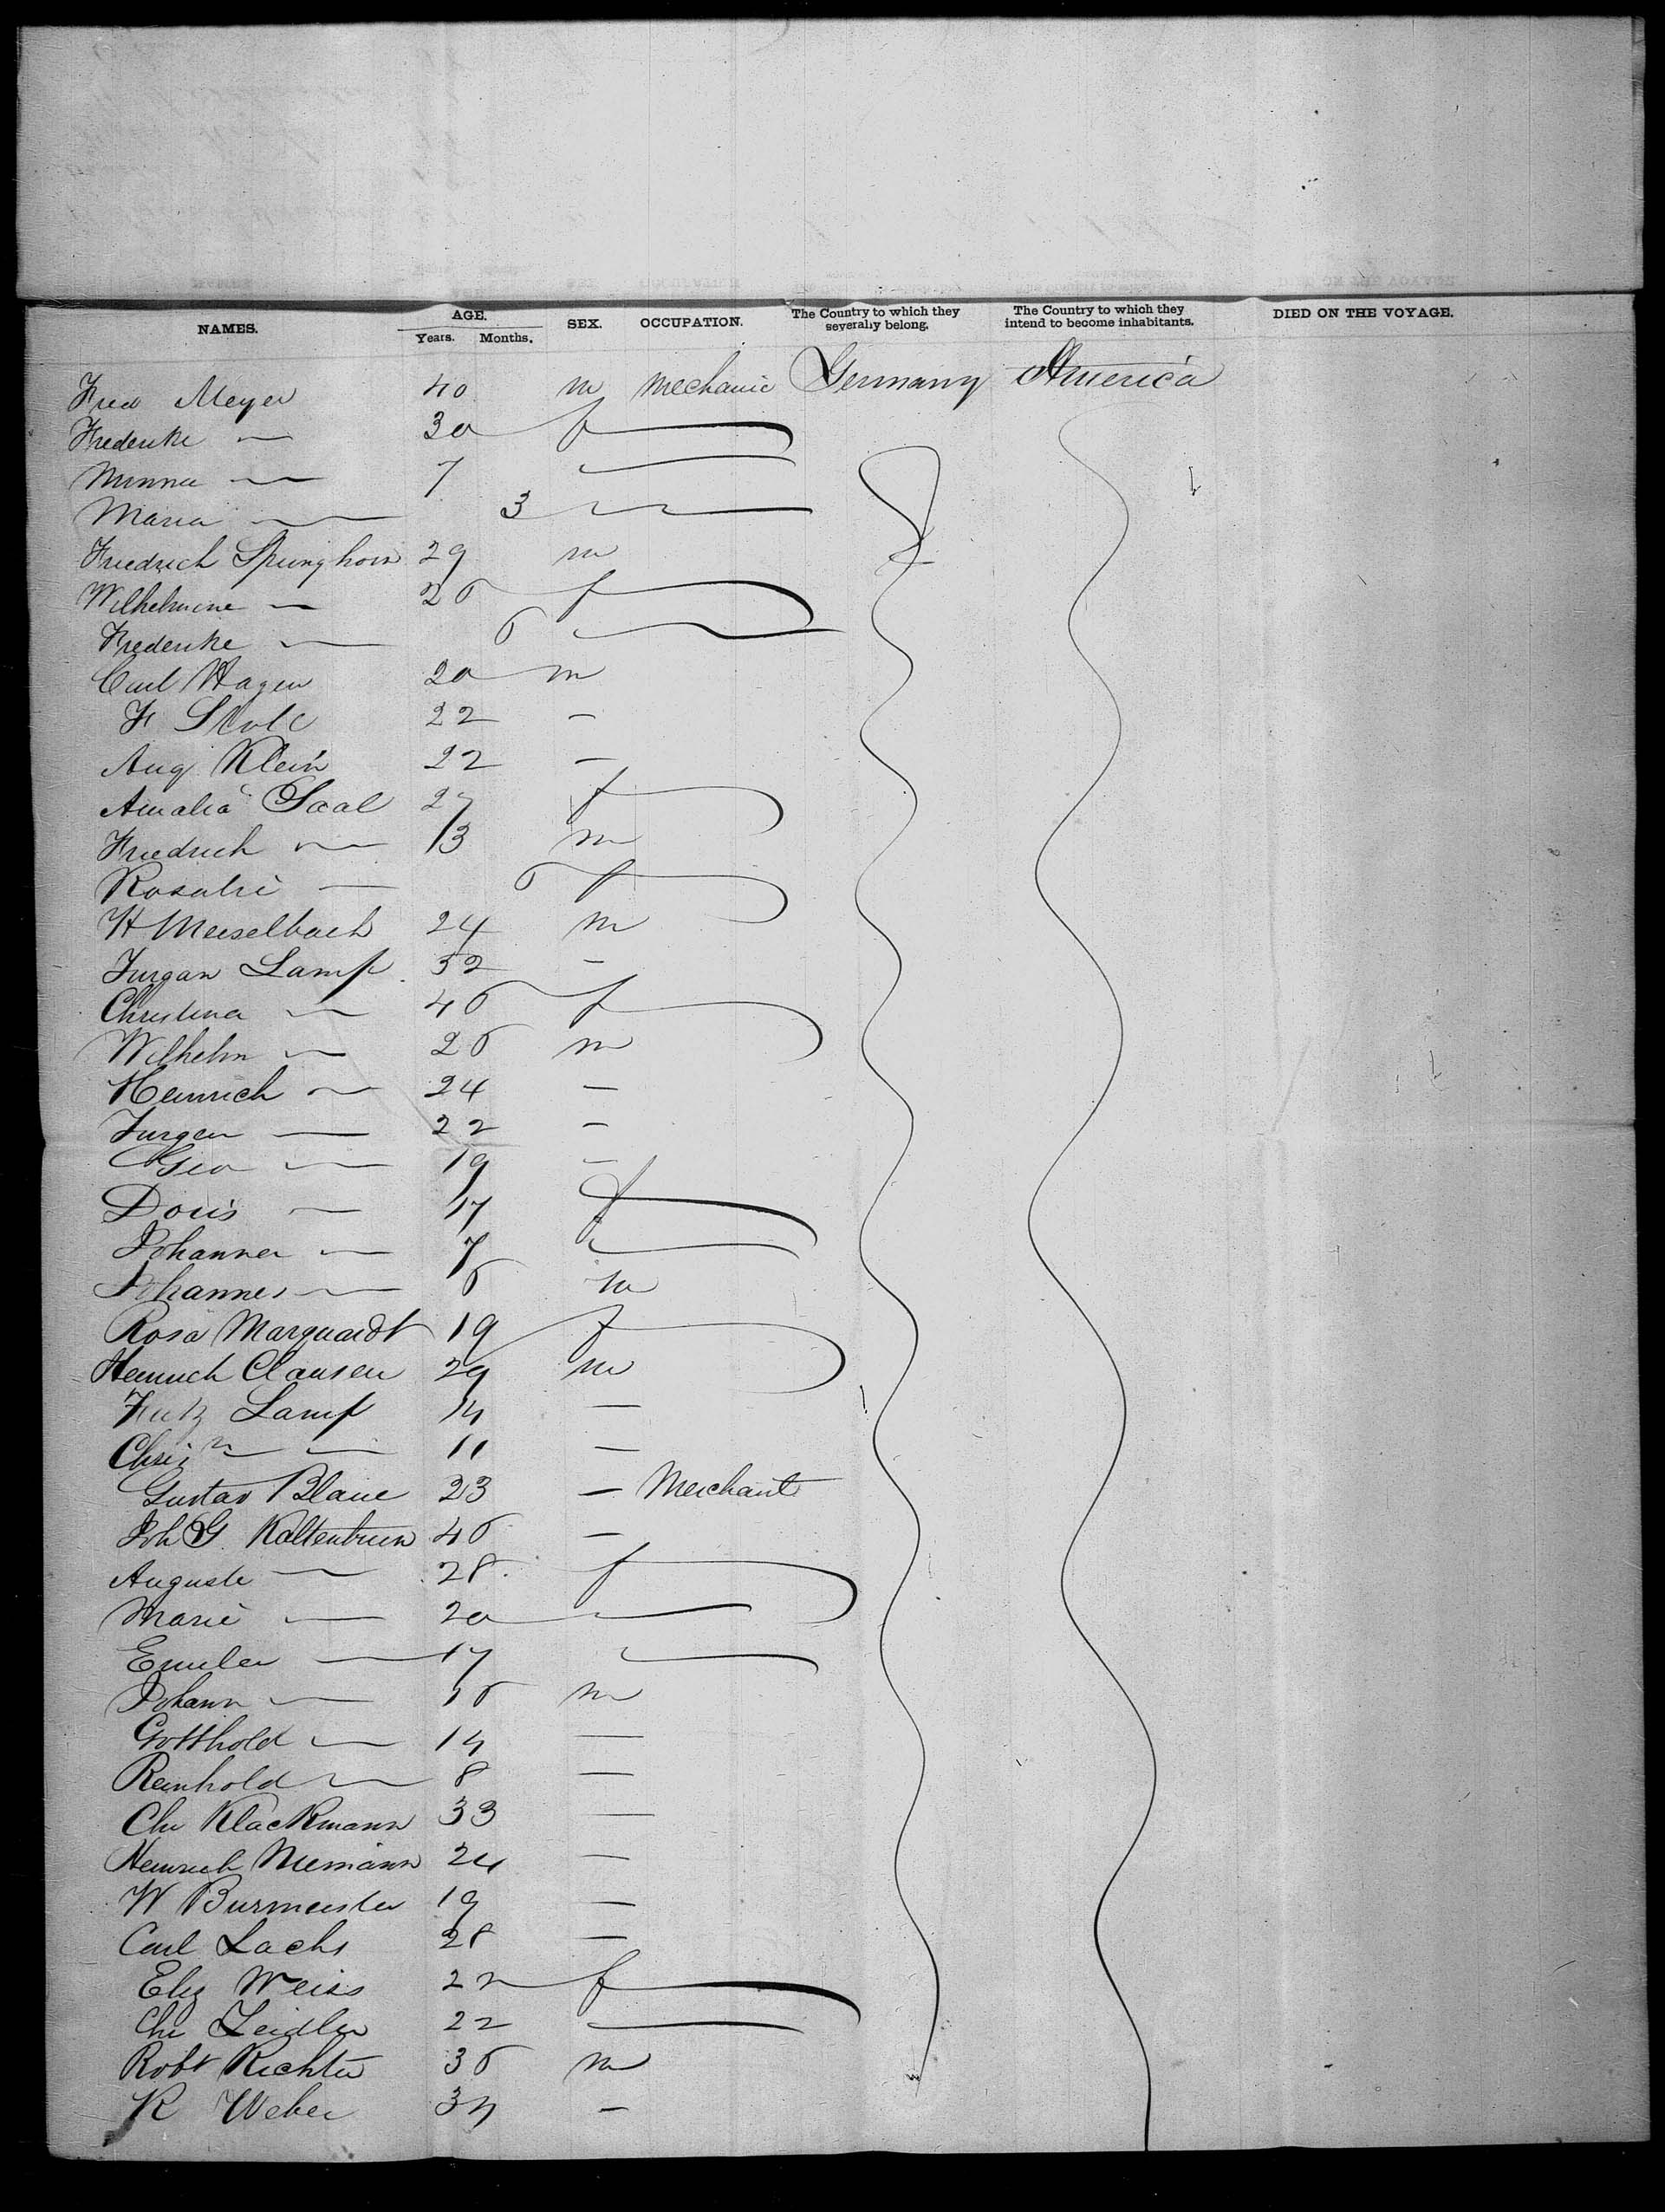 NAMES. AGE. SEX. OCCUPATION. The Country to which they severally belong. The Country to which they intend to become inhabitants. DIED ON THE VOYAGE.
Years. Months.
Fred Meyer 40 m Mechanic Germany America
Frederike — 30 f
Minna — 7
Maria — 3
Friedrich Springhorn 29 m
Wilhelmine — 26 f
Frederike — 6
Carl Hagen 20 m
F 22 —
Aug Klein 22 —
Amalia Saal 27 f
Friedrich — 13 m
Rosalie — 6 f
H Meiselbach 24 m
Jurgan Lamp 52 —
Christina — 46 f
Wilhelm — 26 m
Heinrich — 24 —
Jurgen — 22 —
Geo — 19 —
Doris — 17 f
Johanna — 7
Johannes — 6 m
Rosa Marquardt 19 f
Heinrich Clausen 29 m
Fritz Lamp 14 —
Chris — 11 —
Gustav Blaue 23 — Merchant
Joh G. Kaltenbrun 46 —
Auguste — 28 f
Marie — 20
Emilea — 17
Johann — 16 m
Gotthold — 14 —
Reinhold — 8 —
Chr Klackmann 33 —
Heinrich Niemann 24 —
W Burmeister 19 —
Carl Lachs 28 —
Eliz Weiss 22 f
Chr Zeidler 22
Robt Richter 36 m
R Weber 34 —